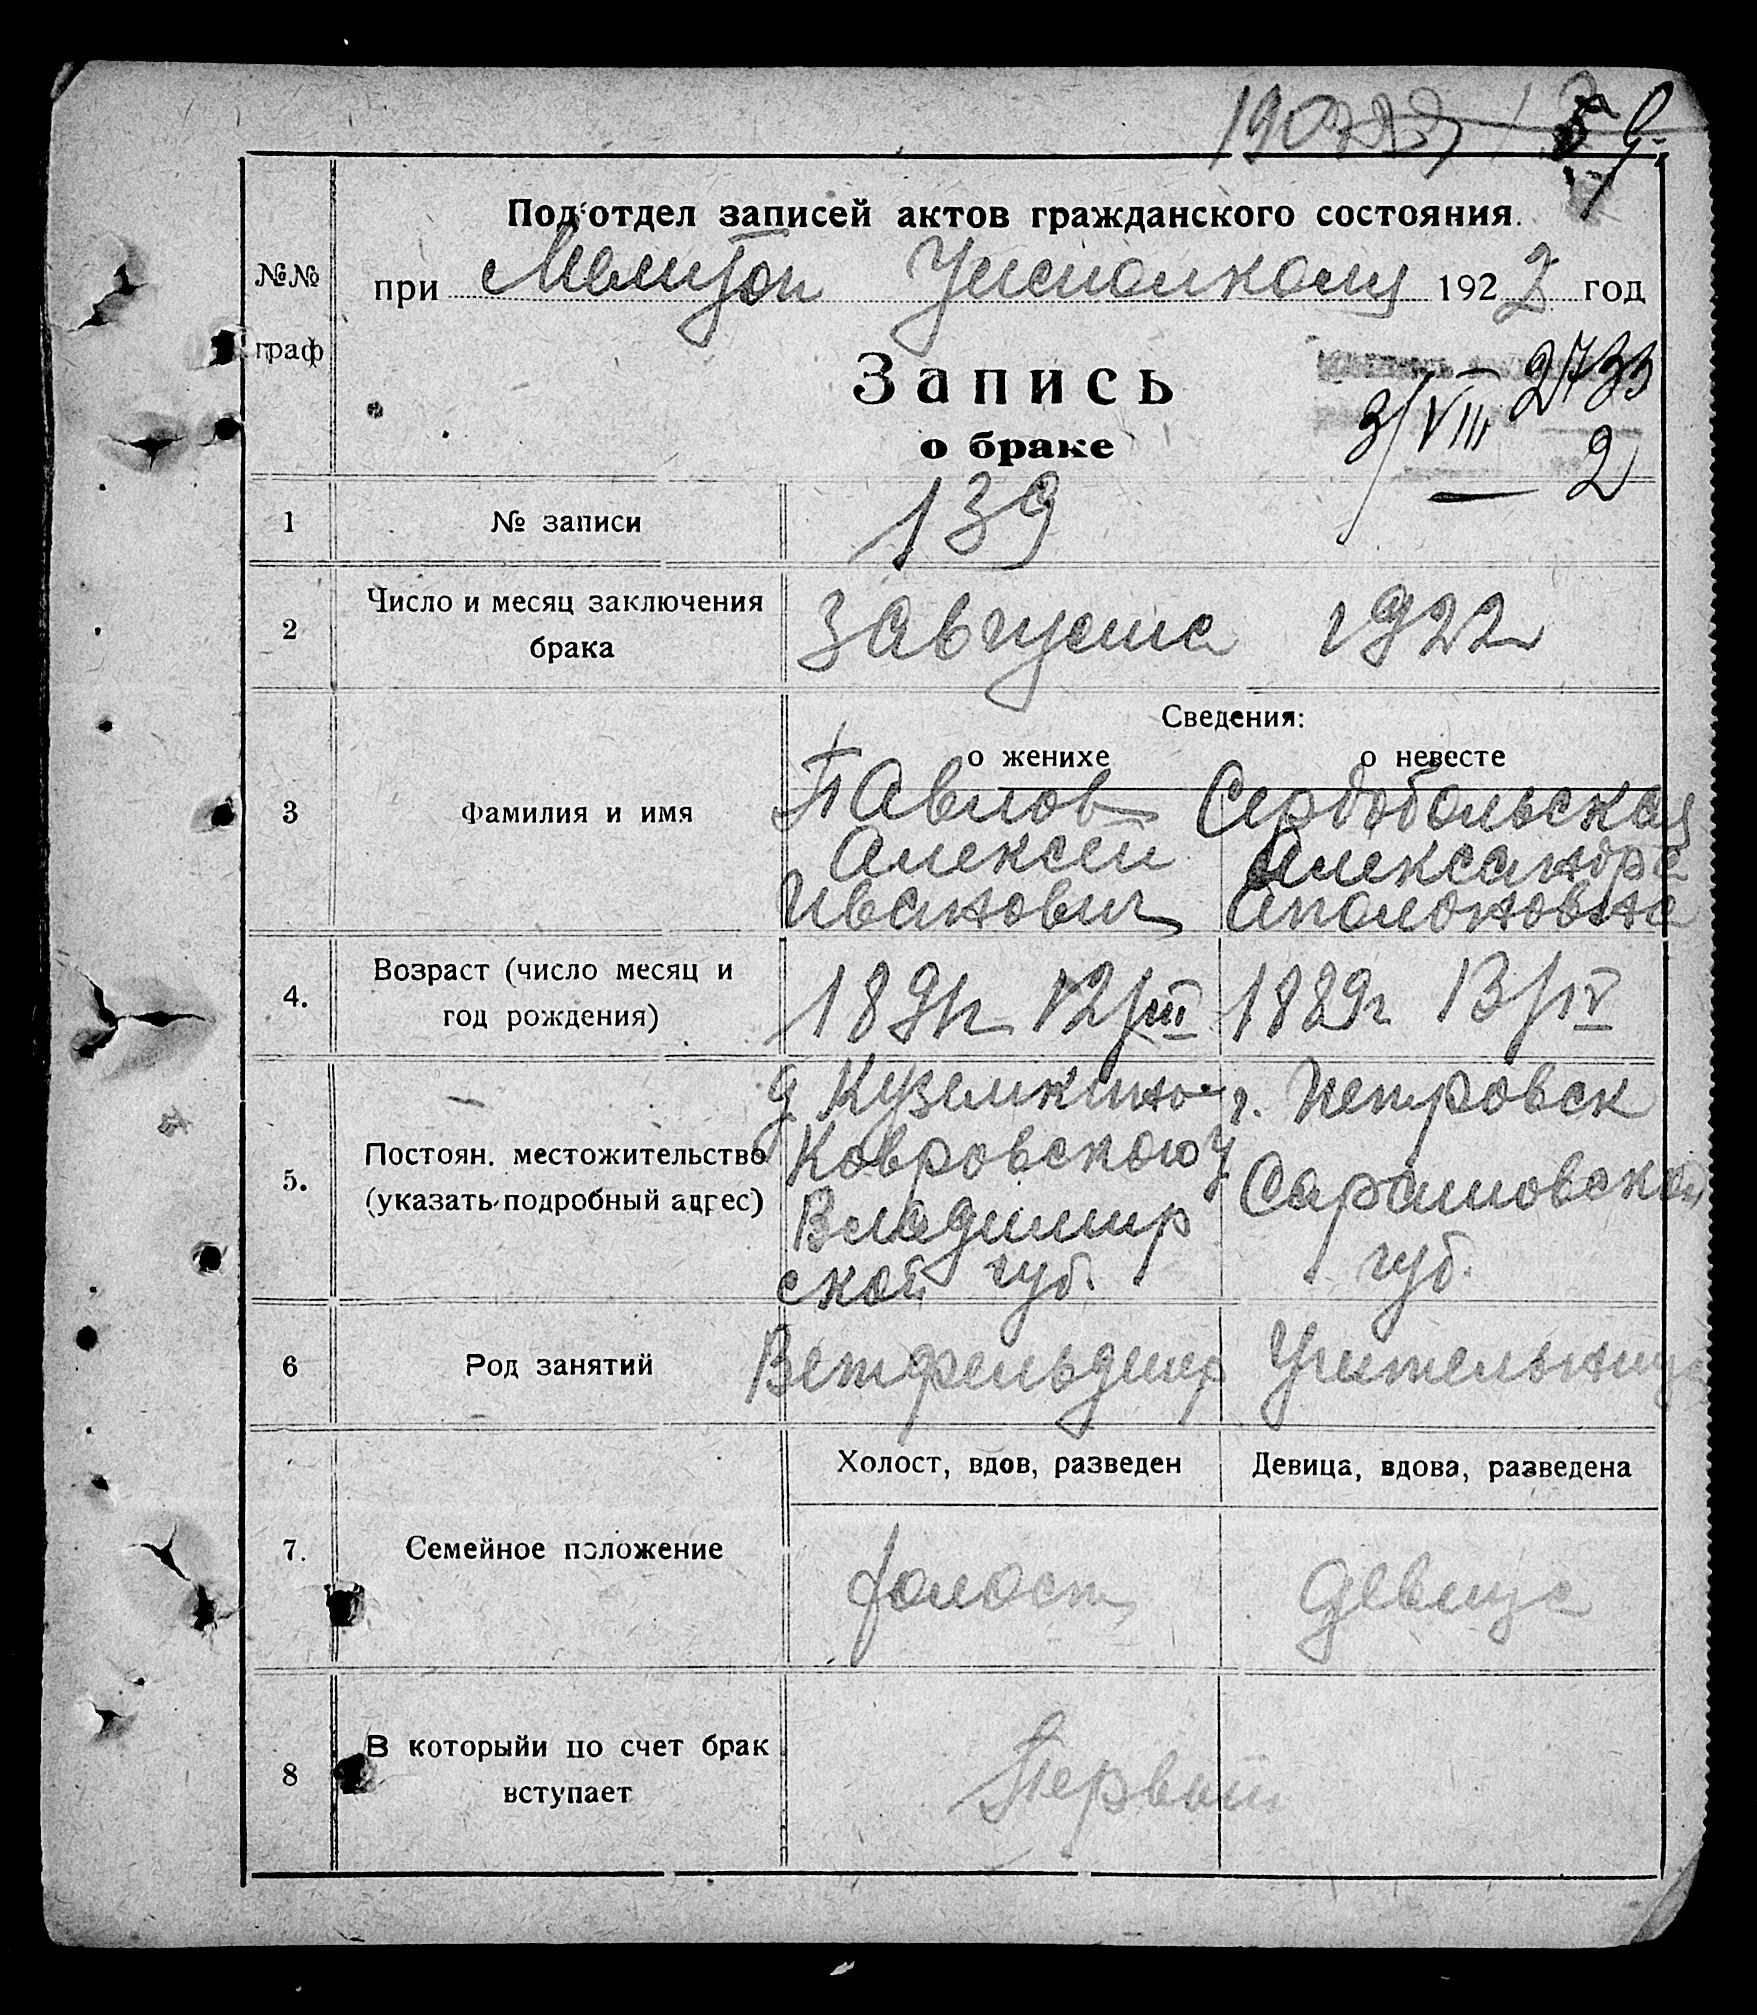 5
Под‘отдел записей актов гражданского состояния.
№№
граф
при Мелитоп Уисполкому 1922 год
Запись
о браке
2733
3/VIII
2
1 № записи 139
2 Число и месяц заключения
брака
3 Августа 1922
Сведения:
о женихе о невесте
3 Фамилия и имя
Павлов Сердобольская
Алексей Александра
Иванович Аполоновна
4. Возраст (число месяц и
год рождения)
1891г 12/III 1889г 13/IV
5. Постоян. местожительство
(указать подробный адрес)
д Куземкино г. Петровск
Ковровского у Саратовской
Владимир губ.
ской губ.
6 Род занятий Ветфельдшер Учительница
Холост, вдов, разведен Девица, вдова, разведена
7. Семейное положение холост девица
8 В которыйи по счет брак
вступает
Первый